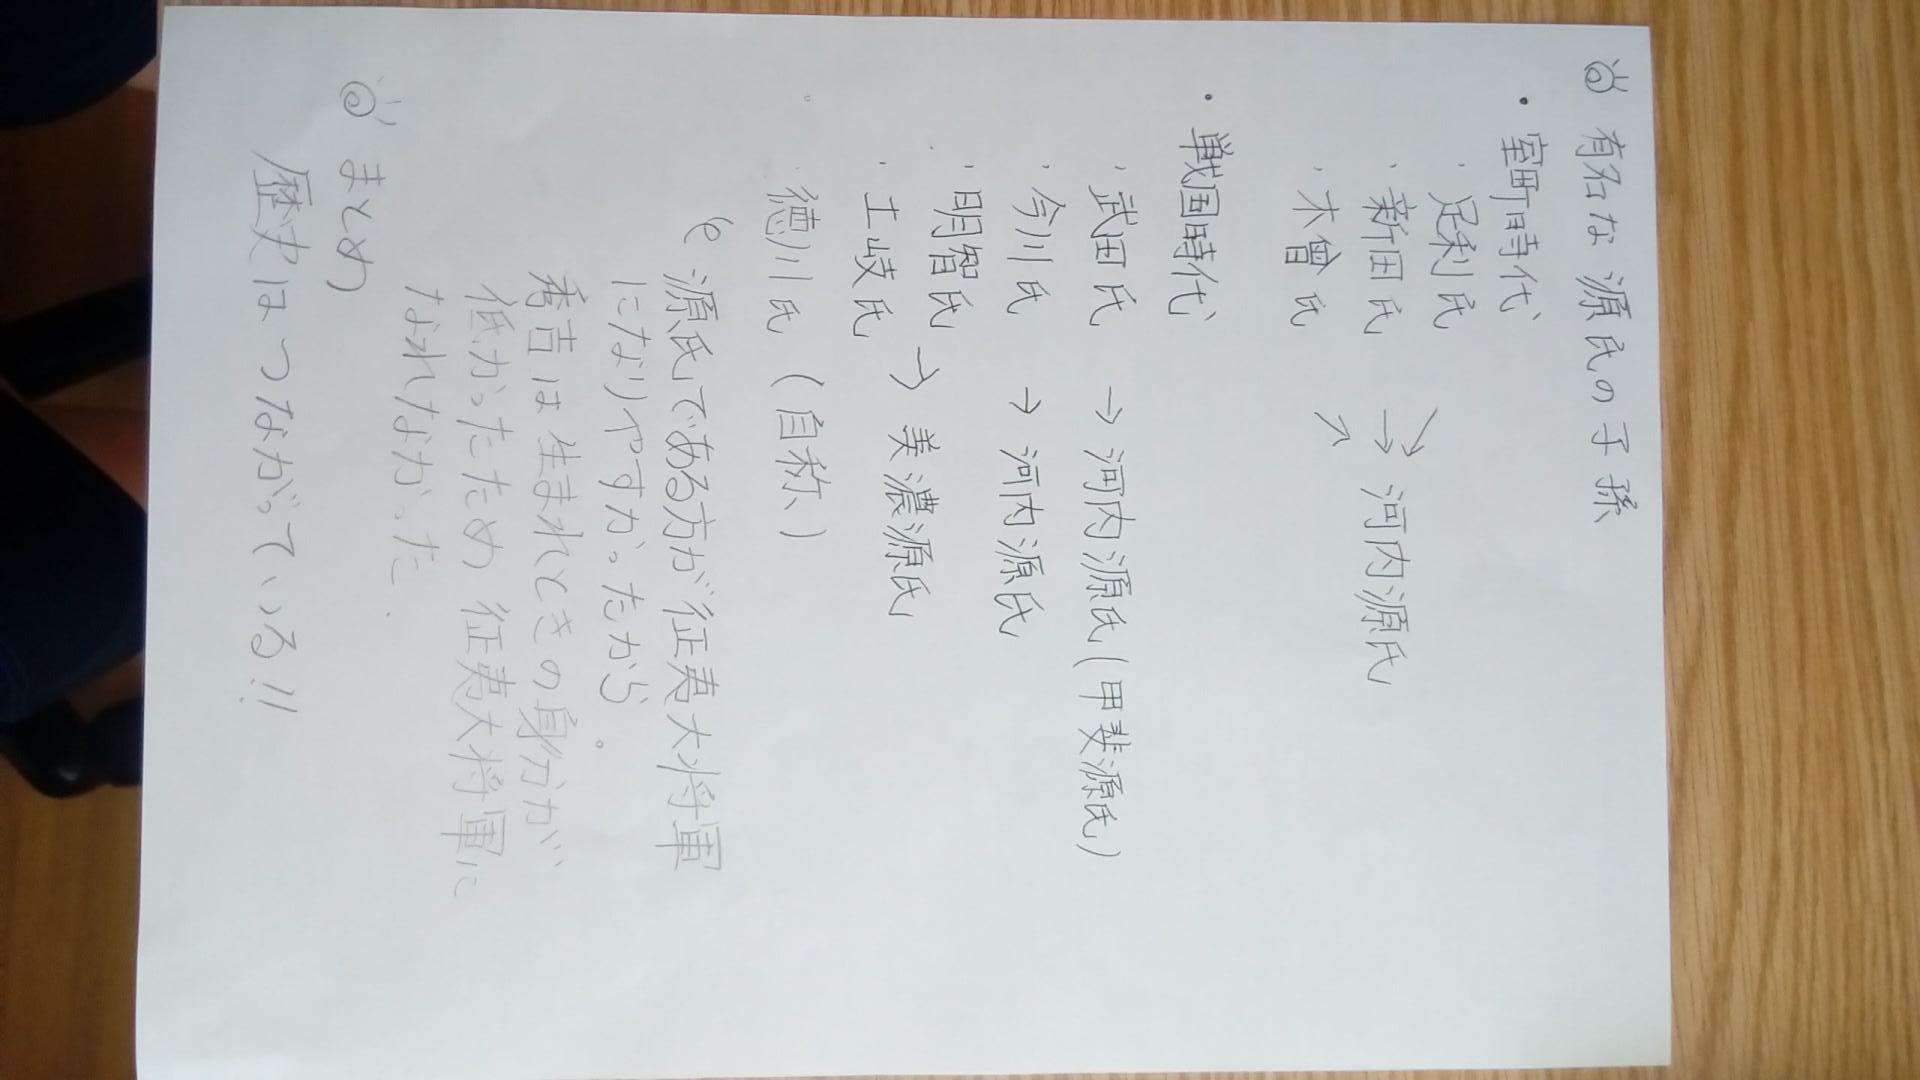 有名な源氏の子孫
・室町時代
・足利氏
・新田氏 → 河内源氏
・木曾氏
・戦国時代
・武田氏 → 河内源氏(甲斐源氏)
・今川氏 → 河内源氏
・明智氏
・土岐氏 → 美濃源氏
・徳川氏 (自称)
源氏である方が征夷大将軍
になりやすかったから。
秀吉は生まれときの身分が
低かったため征夷大将軍に
なれなかった.
まとめ
歴史はつながっている!!